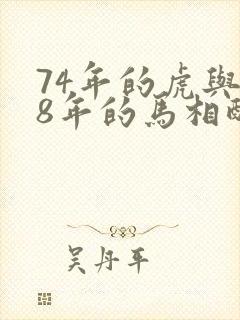 74年的虎與
8年的馬相配
吴丹平